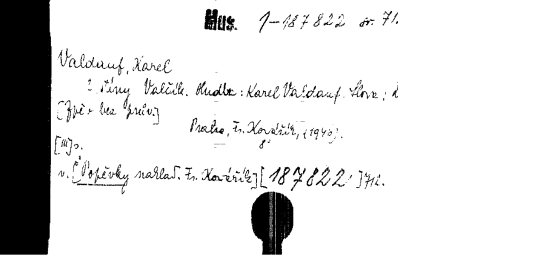 Hus. 1-187822 sv. 71.
Valdauf, Karel
Valčík. Hudba: Karel Valdauf. Slova:
[Zpěv bez prův.]
Praha, Fr. Kovářík, (1940).
8°
[III] s.
v. [Popěvky naklad. Fr. Kovářík] [187822/]71.